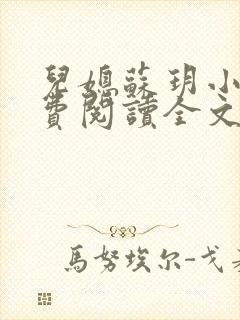 兒媳蘇玥小
費閱讀全文
馬努埃尔-戈